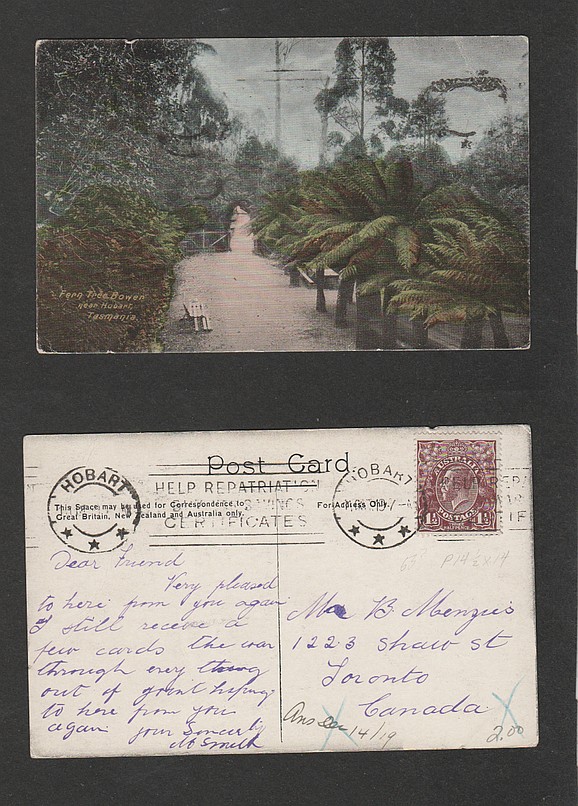 Fern Tree Bower
near Hobart,
Tasmania.
Post Card
HOBART
HELP REPATRIATION
CERTIFICATES
HOBART
AUSTRALIA
1½ POSTAGE 1½
This Space may be used for Correspondence to
Great Britain, New Zealand and Australia only.
For Address Only.
63 P14½x14
Dear Friend
Very pleased
to here from you again
I still receive a
few cards the war
through every thing
out of joint hoping
to here from you
again your Sincerly
M Smith
B Menzies
1223 Shaw st
Toronto
Canada
14/19
2.00